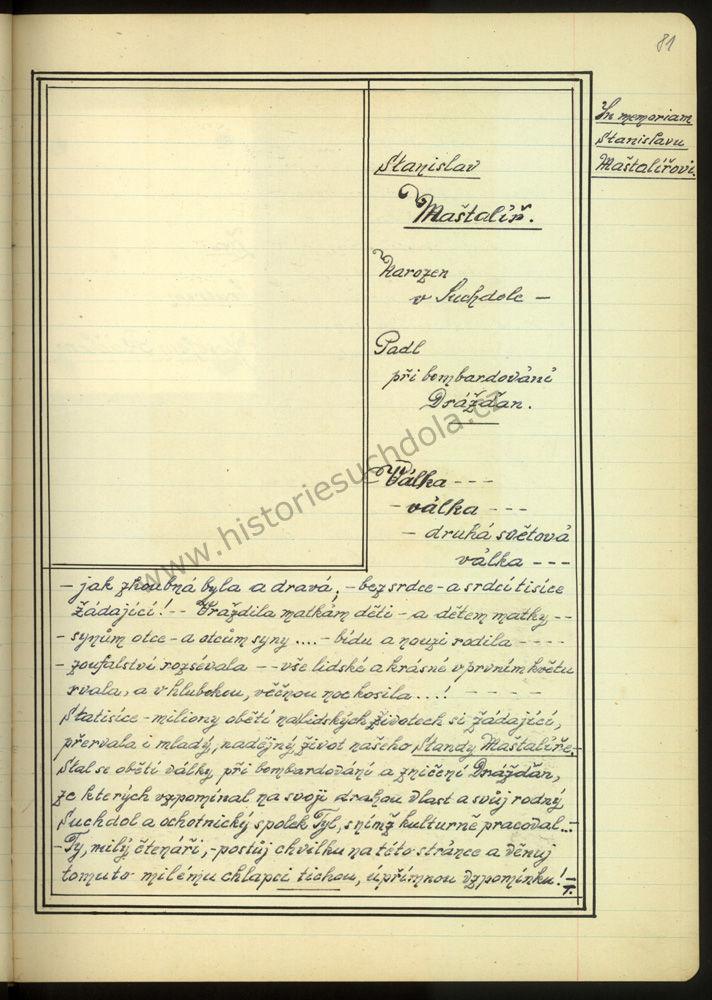 81
In memoriam
Stanislavu
Maštalířovi.
Stanislav
Maštalíř.
Narozen
v Suchdole —
Padl
při bombardování
Drážďan.
Válka - - -
- válka - - -
- druhá světová
válka - - -
- jak zhoubná byla a dravá, - bez srdce - a srdcí tisíce
žádající! - - Vraždila matkám děti - a dětem matky - -
- synům otce - a otcům syny .... - bídu a nouzi rodila - - - -
- zoufalství rozsévala - - vše lidské a krásné v prvním květu
rvala, a v hlubokou, věčnou noc kosila...! - - - - -
Statisíce - miliony obětí na lidských životech si žádající,
přervala i mladý, nadějný život našeho Standy Maštalíře. -
Stal se obětí války při bombardování a zničení Drážďan,
ze kterých vzpomínal na svoji drahou vlast a svůj rodný
Suchdol a ochotnický spolek Tyl, s nímž kulturně pracoval... -
- Ty, milý čtenáři, - postůj chvilku na této stránce a věnuj
tomuto milému chlapci tichou, upřímnou vzpomínku! -
T.
www.historiesuchdola.cz